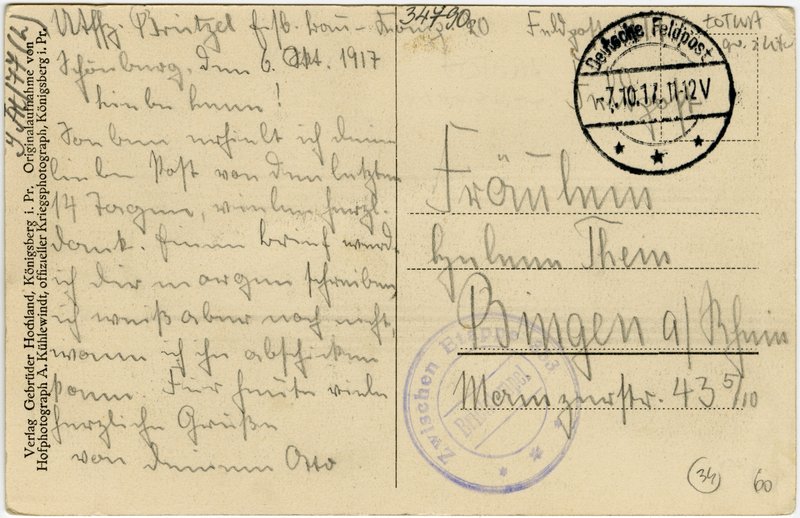 Schönberg, den 6. Okt. 1917
Liebe Lene!
Soeben erhielt ich deine
liebe Post von den letzten
14 Tagen, vielen herzl.
Dank. Einen Brief werde
ich dir morgen schreiben,
ich weiß aber noch nicht,
wann ich ihn abschicken
kann. Für heute viele
herzliche Grüße
von deinem Otto
Feldpost
Deutsche Feldpost
7.10.17. 11-12V
Fräulein
Thein
Bingen a/Rhein
Mainzerstr. 43 5/10
Zwischen
34790
34
60
Verlag Gebrüder Hochland, Königsberg i. Pr. Originalaufnahme von
Hofphotograph A. Kühlewindt, offizieller Kriegsphotograph, Königsberg i. Pr.